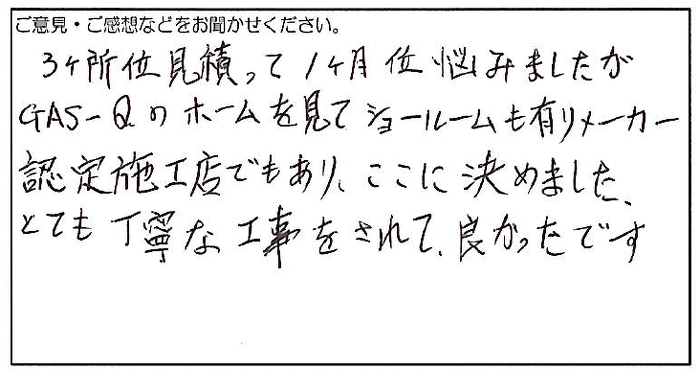 ご意見・ご感想などをお聞かせください。
3ヶ所位見積って1ヶ月位悩みましたが
GAS-Qのホームを見てショールームも有りメーカー
認定施工店でもあり、ここに決めました、
とても丁寧な工事をされて、良かったです